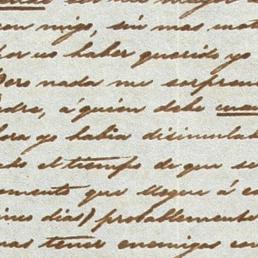 con migo, sin mas mot
por no haber querido yo
Pero nada me sorpren
dre, á quien debe cuan
hora yo habia disimulad
do el tiempo de que se
mente que llegue á es
cinco dias) probablemente
mas tener enemigos con